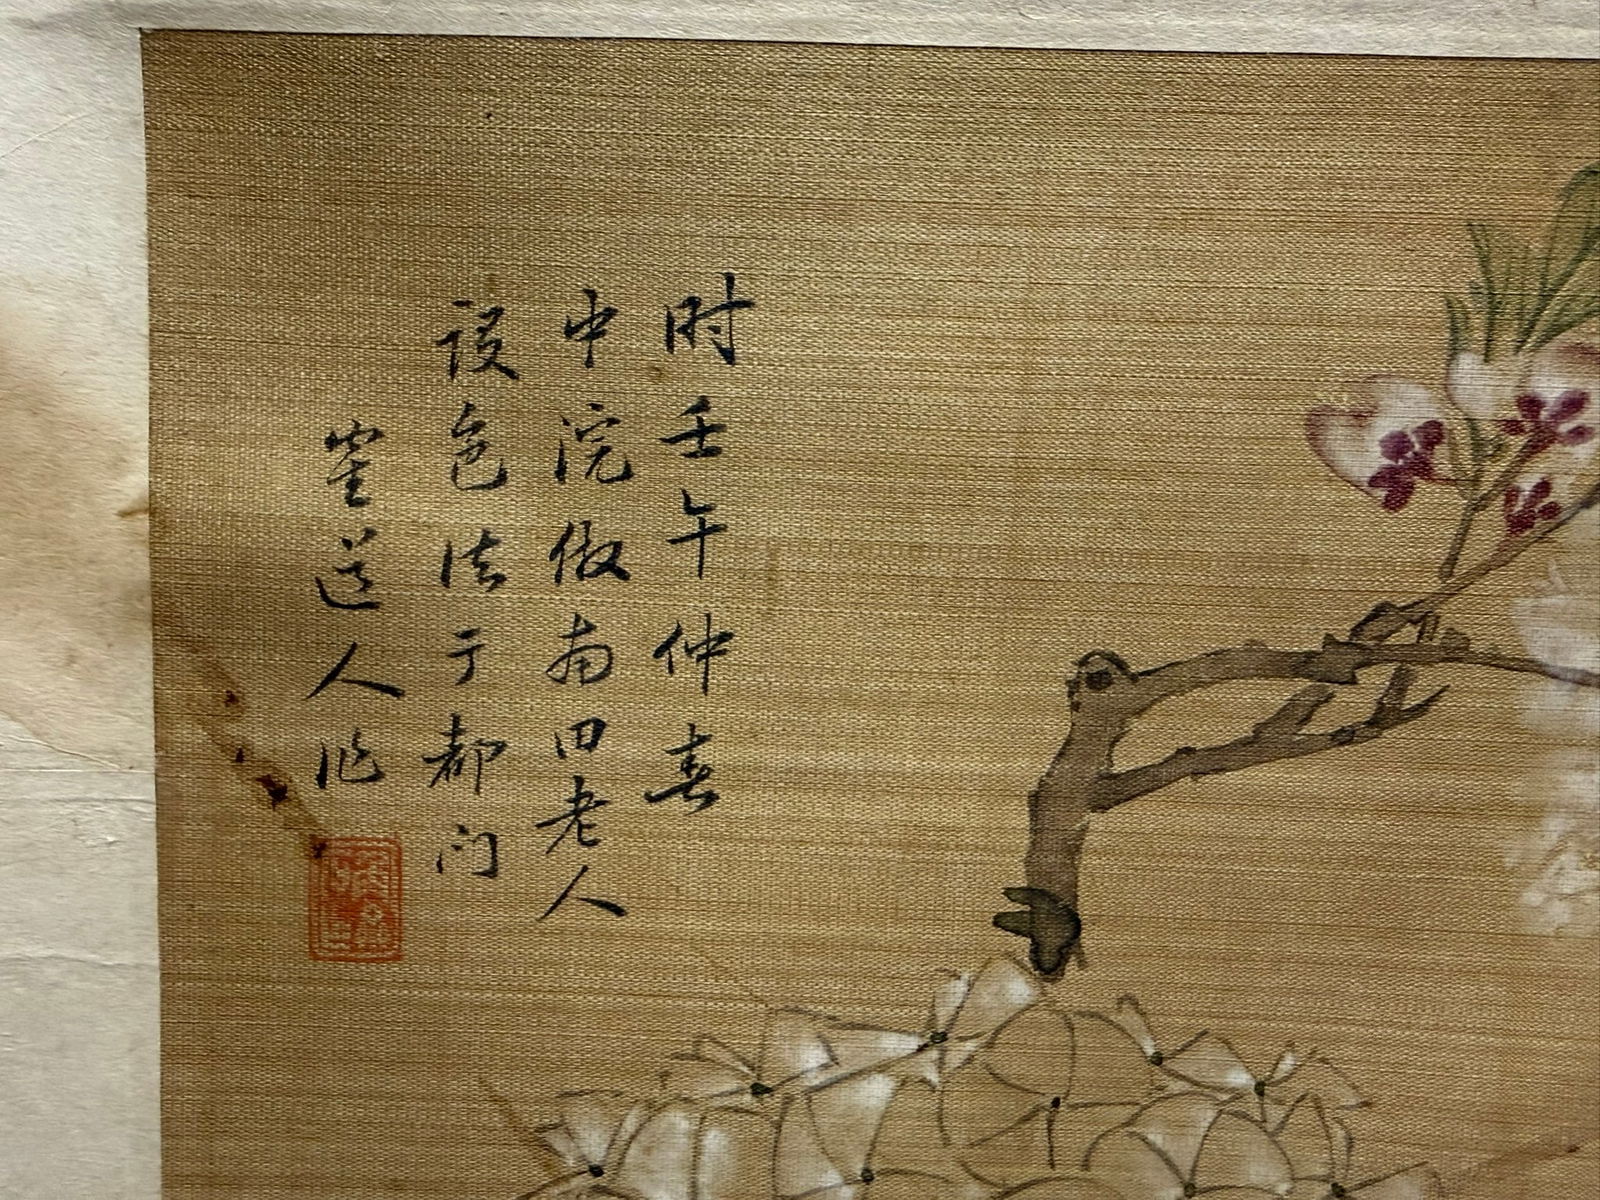 时壬午仲春
中浣仿南田老人
设色法于都门
道人作